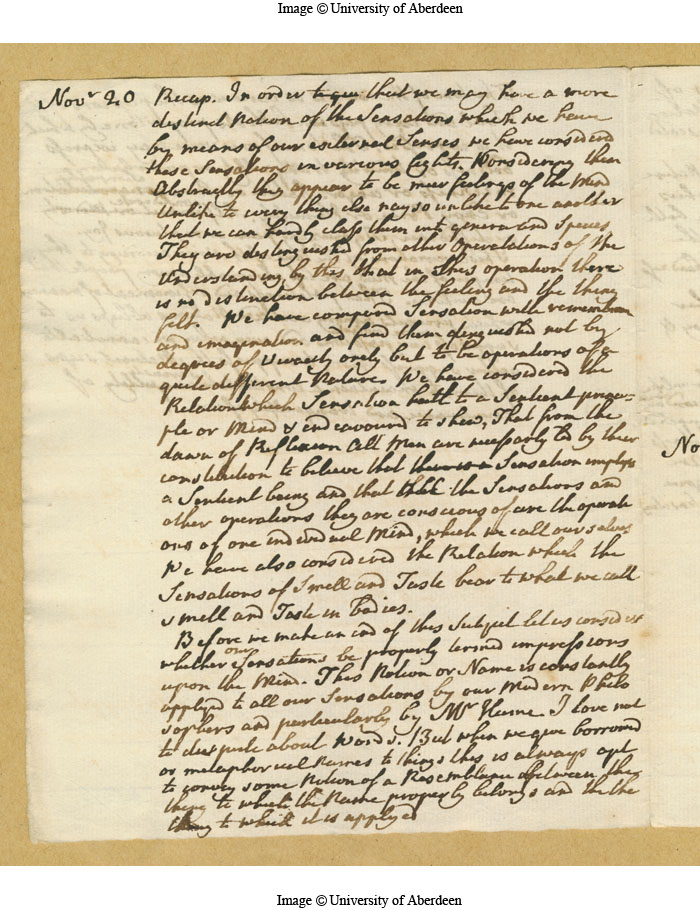 Image © University of Aberdeen
Novr 20 Recap. In order to que that we may have a more
distinct Notion of the Sensations which we have
by means of our external Senses we have considered
these Sensations in various Lights. Considering them
Abstractly they appear to be meer feelings of the Mind
Unlike to every thing else nay so unlike to one another
that we can hardly class them into genera and Species
They are distinguished from other Operations of the
Understanding by this that in this operation there
is no distinction between the feeling and the thing
felt. We have compared Sensation with remembran
and imagination and find them distinguished not by
degrees of Vivacity onely but to be operations of a
quite different Nature. We have considered the
Relation which Sensation hath to a Sentient princi-
ple or Mind & indeavoured to shew, That from the
dawn of Reflexion All Men are necessarly led by their
constitution to believe that there is a Sensation implys
a Sentient being and that the Sensations and
other operations they are conscious of are the operati
ons of one individual Mind, which we call ourselves
We have also considered the Relation which the
Sensations of Smell and Taste bear to what we call
smell and Taste in bodies.
No
Before we make an end of this Subject let us consider
whether our Sensations be properly termed impressions
upon the Mind. This Notion or Name is constantly
applyed to all our Sensations by our Modern Philo
sophers and particularly by Mr Hume. I love not
to dispute about Words. But when we give borrowed
or metaphorical Names to things this is always apt
to convey some Notion of a Resemblance between the
thing to which the Name properly belongs and the
thing to which it is applyed
Image © University of Aberdeen